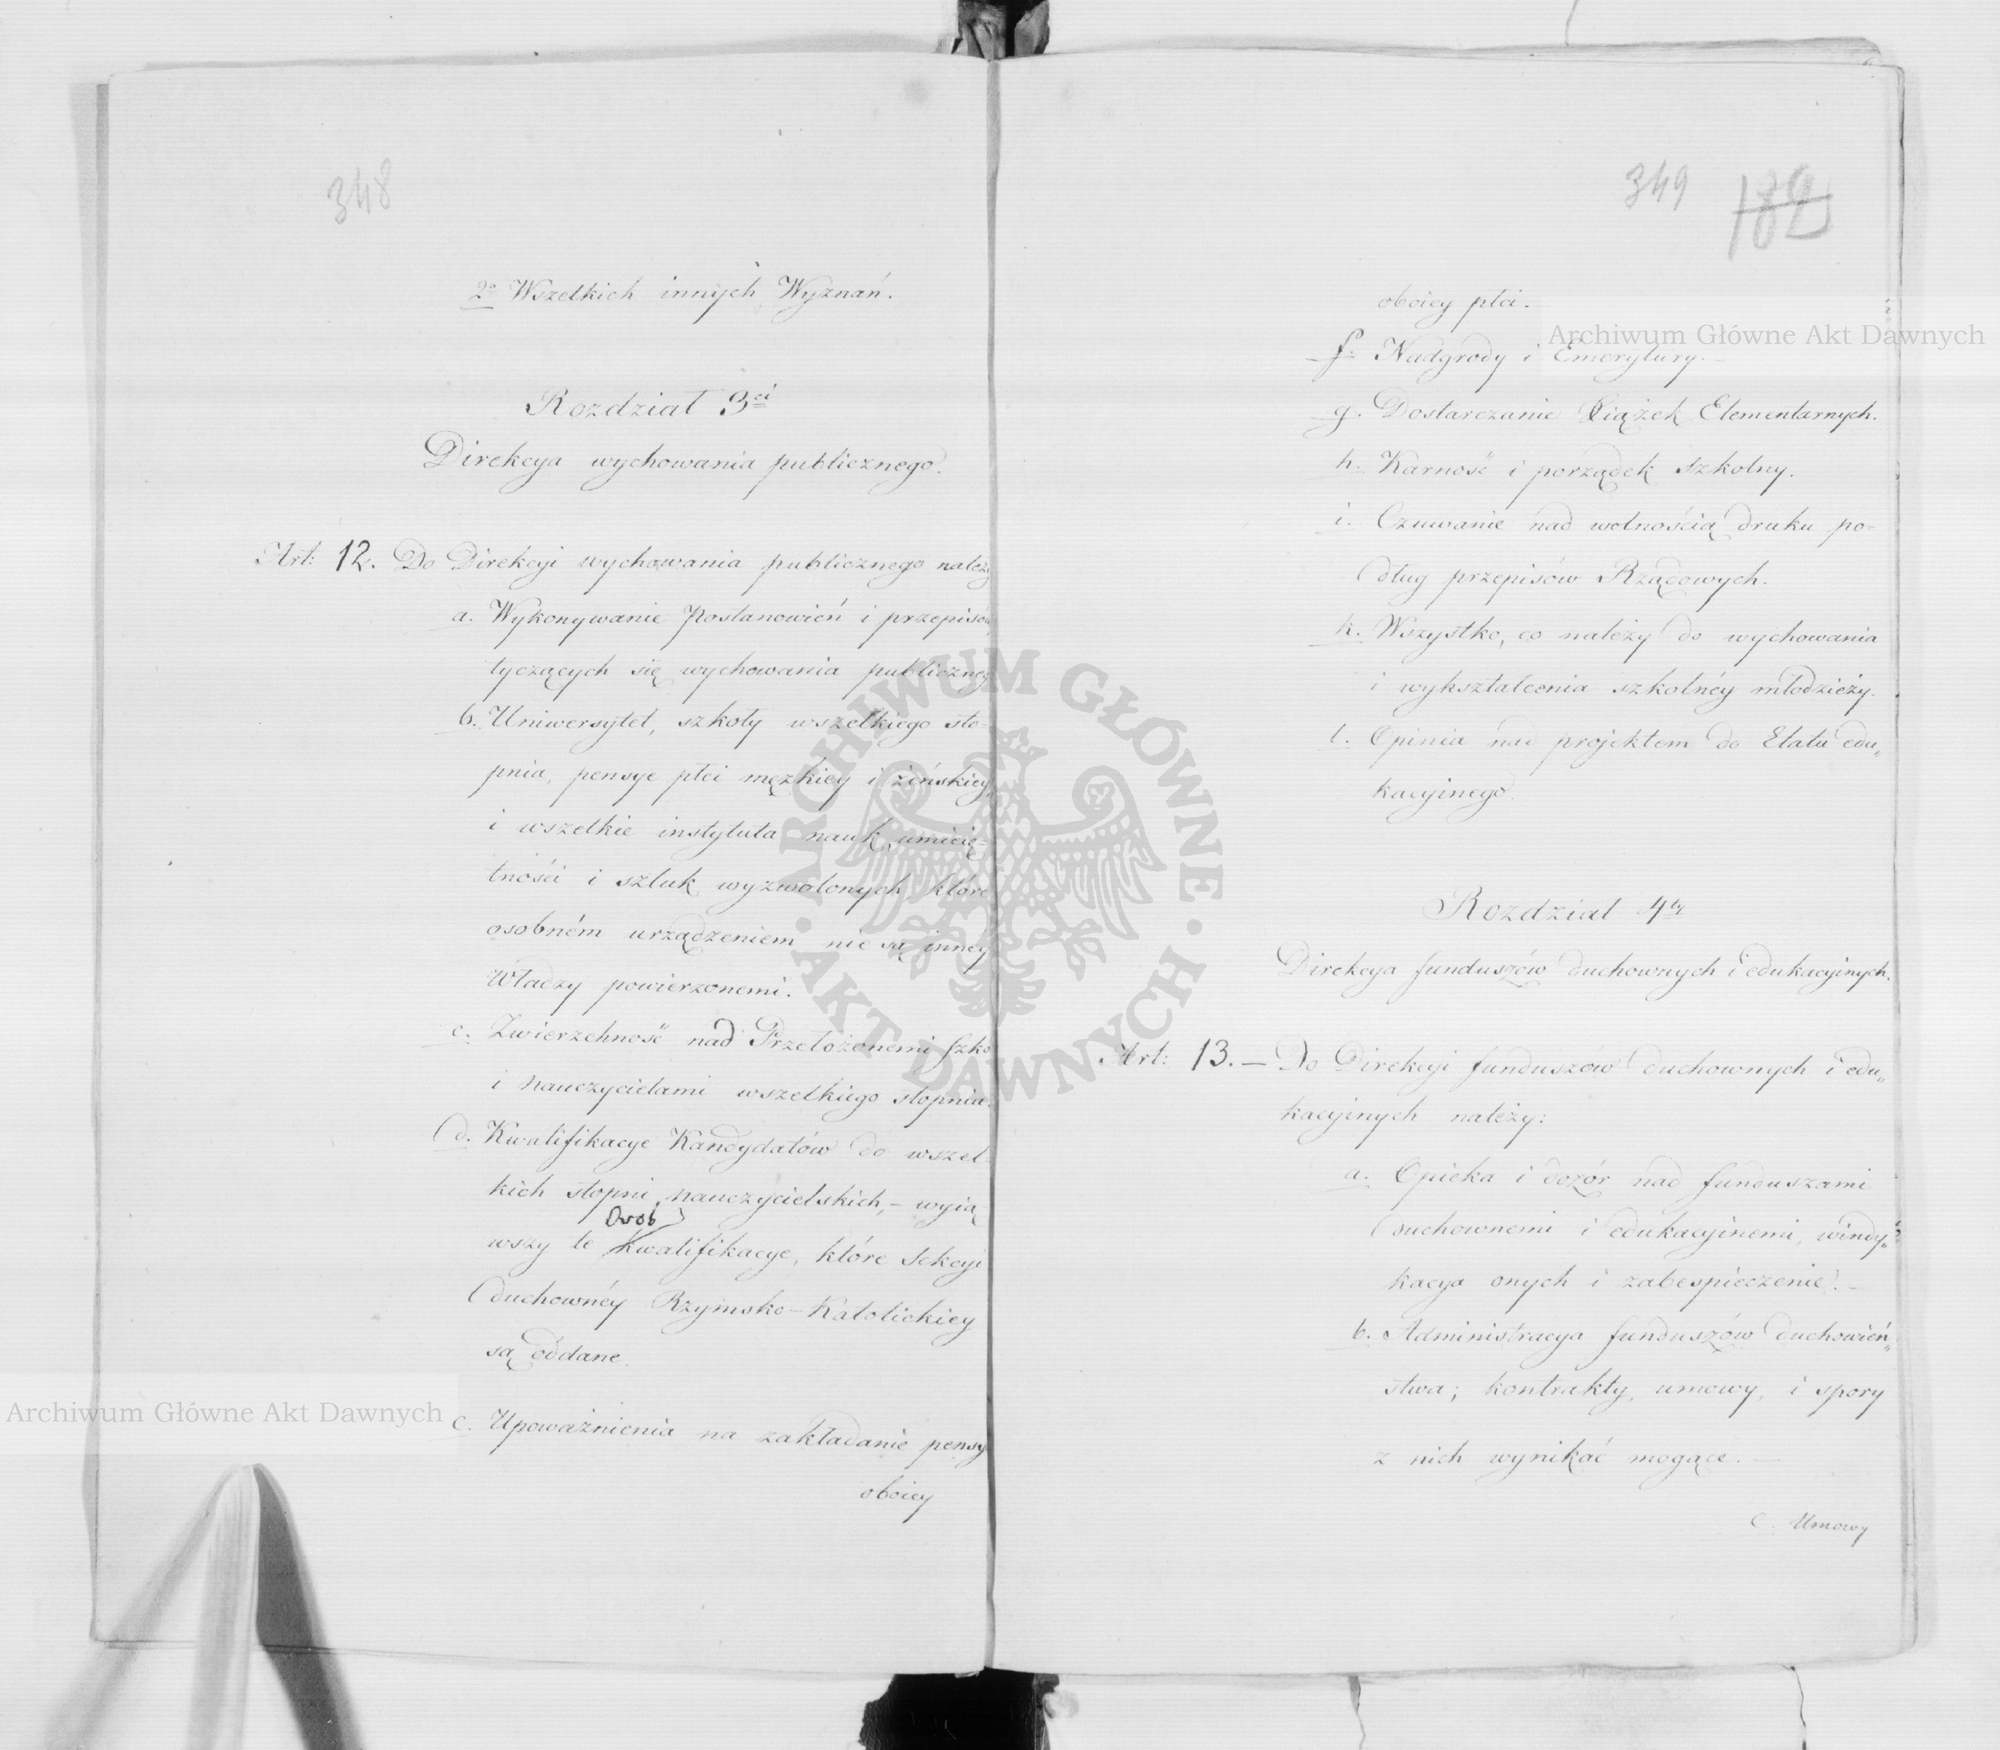 348
2o Wszelkich innych Wyznań.
Rozdział 3ci
Direkcya wychowania publicznego.
Art: 12. Do Direkcyi wychowania publicznego należy
a. Wykonywanie Postanowień i przepisów
tyczących się wychowania publiczneg
b. Uniwersytet, szkoły wszelkiego sto-
pnia, pensye płci męzkiey i żeńskiey,
i wszelkie instytuta nauk, umieię-
tności i sztuk wyzwolonych, które
osobném urządzeniem nie są inney
Władzy powierzonemi.
c. Zwierzchność nad Przełożonemi szkó
i nauczycielami wszelkiego stopnia.
d. Kwalifikacye Kandydatów do wszel-
kich stopni nauczycielskich, – wyią
Osób
wszy te Kwalifikacye, które Sekcyi
duchownéy Rzymsko-Katolickiey
są oddane.
e. Upoważnienia na zakładanie pensy
oboiey
349 182
oboiey płci.
f. Nadgrody i Emerytury. –
g. Dostarczanie Xiążek Elementarnych.
h. Karność i porządek szkolny.
i. Czuwanie nad wolnością druku po-
dług przepisów Rządowych.
k. Wszystko, co należy do wychowania
i wykształcenia szkolnéy młodzieży.
l. Opinia nad projektem do Etatu edu„
kacyinego
Rozdział 4ty
Direkcya funduszów duchownych i edukacyinych.
Art: 13. – Do Direkcyi funduszow duchownych i edu„
kacyinych należy:
a. Opieka i dozór nad funduszami
duchownemi i edukacyinemi, windy„
kacya onych i zabespieczenie. –
b. Administracya funduszów duchowień„
stwa; kontrakty, umowy, i spory
z nich wynikać mogące. –
c. Umowy
Archiwum Główne Akt Dawnych
Archiwum Główne Akt Dawnych
ARCHIWUM GŁÓWNE · AKT DAWNYCH ·